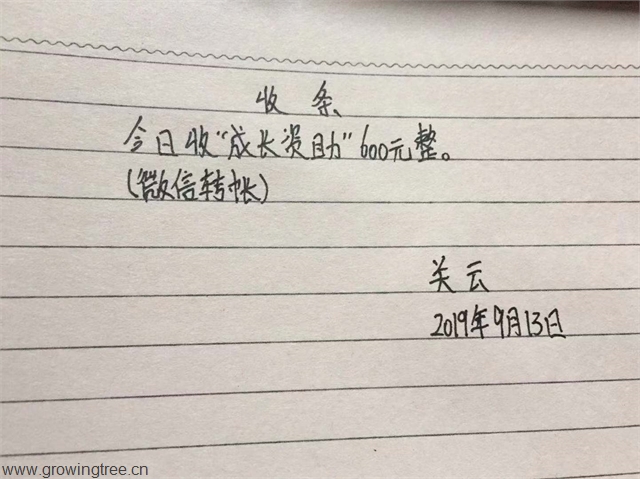 收条
今日收“成长资助”600元整。
(微信转帐)
关云
2019年9月13日
www.growingtree.cn